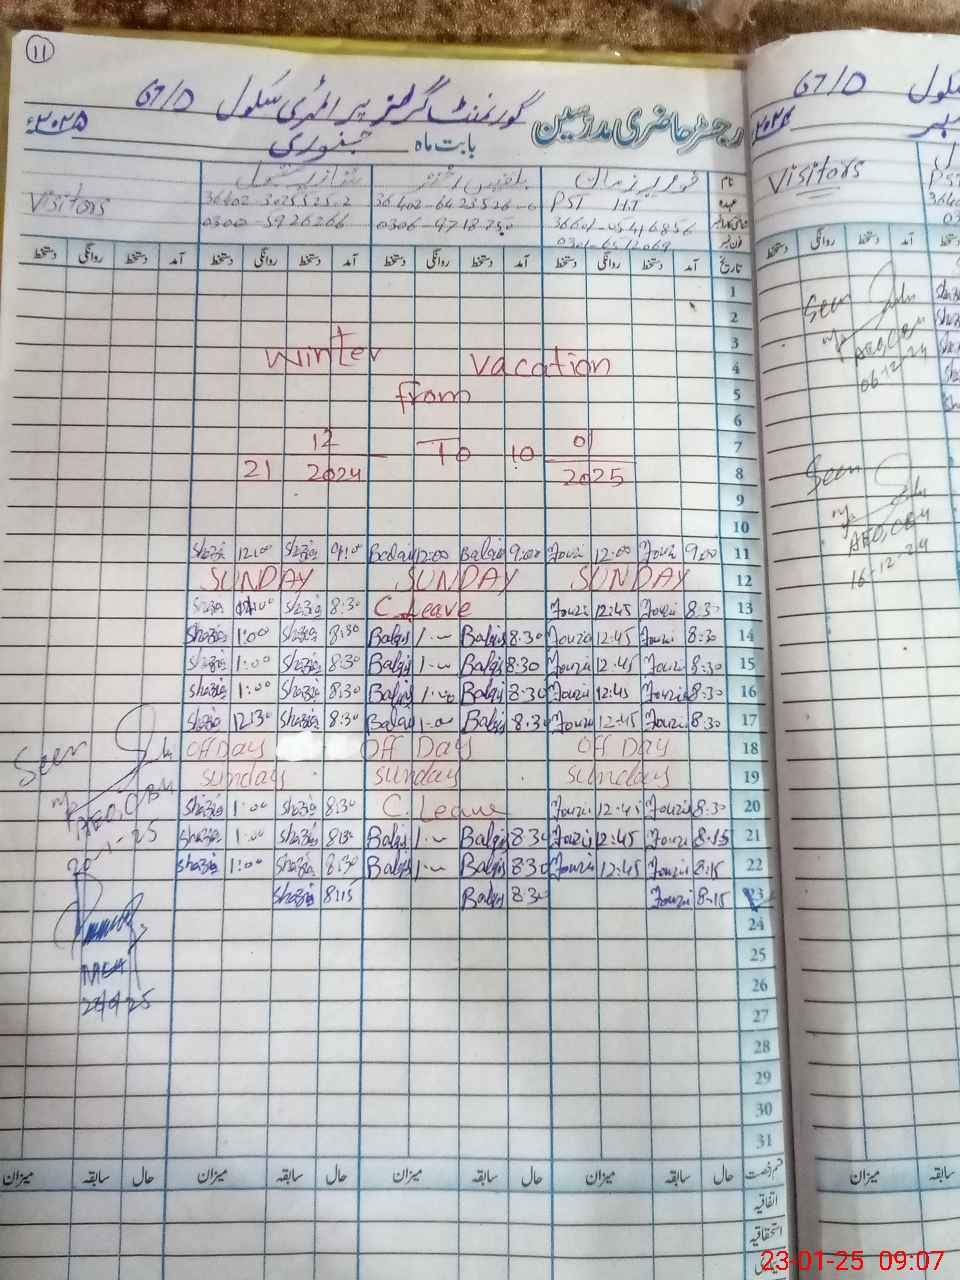 ۱۱
گورنمنٹ گرلز پرائمری سکول 67/D
رجسٹر حاضری مدرسین بابت ماہ جنوری ۲۰۲۵ء
نام
Visitors
عہدہ PST H.T
36402-6423526-0
0306-9718250
0300-5926266
0301-6512069
تاریخ آمد دستخط روانگی دستخط آمد دستخط روانگی دستخط آمد دستخط روانگی دستخط آمد دستخط روانگی دستخط
1
2
3
Winter vacation
4
from
5
6
12 To 10 01
7
21 2024 2025
8
9
10
Shazia 12:00 Shazia 9:00 Balqis 12:00 Balqis 9:00 Fouzi 12:00 Fouzi 9:00 11
SUNDAY SUNDAY SUNDAY 12
Shazia Shazia 8:30 C.Leave Fouzia 12:45 Fouzi 8:30 13
Shazia 1:00 Shazia 8:30 Balqis 1:00 Balqis 8:30 Fouzia 12:45 Fouzi 8:30 14
Shazia 1:00 Shazia 8:30 Balqis 1:00 Balqis 8:30 Fouzi 12:45 Fouzi 8:30 15
Shazia 1:00 Shazia 8:30 Balqis 1:00 Balqis 8:30 Fouzi 12:45 Fouzi 8:30 16
Shazia 12:30 Shazia 8:30 Balqis 1:00 Balqis 8:30 Fouzi 12:45 Fouzi 8:30 17
Off Day Off Day Off Day 18
Sunday Sunday Sunday 19
Shazia 1:00 Shazia 8:30 C.Leave Fouzi 12:45 Fouzi 8:30 20
Shazia 1:00 Shazia 8:30 Balqis 1:00 Balqis 8:30 Fouzi 12:45 Fouzi 8:15 21
Shazia 1:00 Shazia 8:30 Balqis 1:00 Balqis 8:30 Fouzi 12:45 Fouzi 8:15 22
Shazia 8:15 Balqis 8:30 Fouzi 8:15 23
24
25
26
27
28
29
30
31
Seen
AEO, CBM
20-1-25
MEA
قسم رخصت حال سابقہ میزان حال سابقہ میزان حال سابقہ میزان حال سابقہ میزان
اتفاقیہ
استحقاقیہ
67/D سکول
Visitors
آمد دستخط روانگی دستخط
Seen
AEO, CBM
06-12-24
Seen
AEO, CBM
16-12-24
میزان سابقہ
23-01-25 09:07